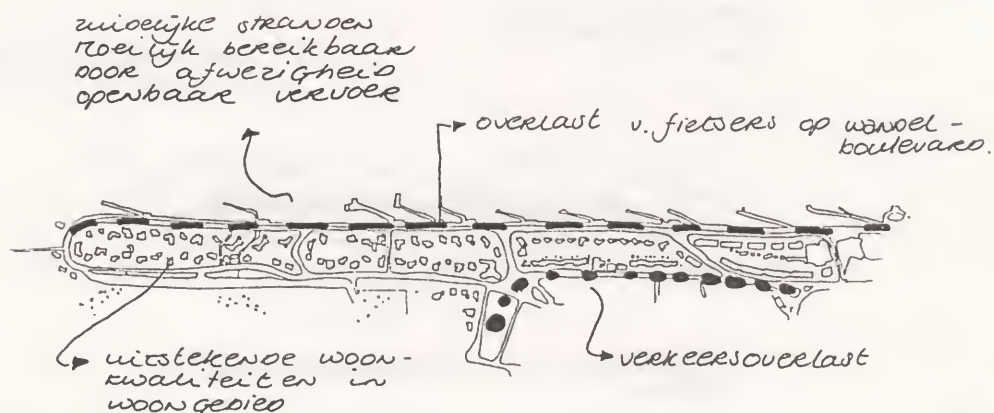 zuidelijke stranden
moeilijk bereikbaar
door afwezigheid
openbaar vervoer
overlast v. fietsers op wandel-
boulevard.
uitstekende woon-
kwaliteiten in
woongebied
verkeersoverlast